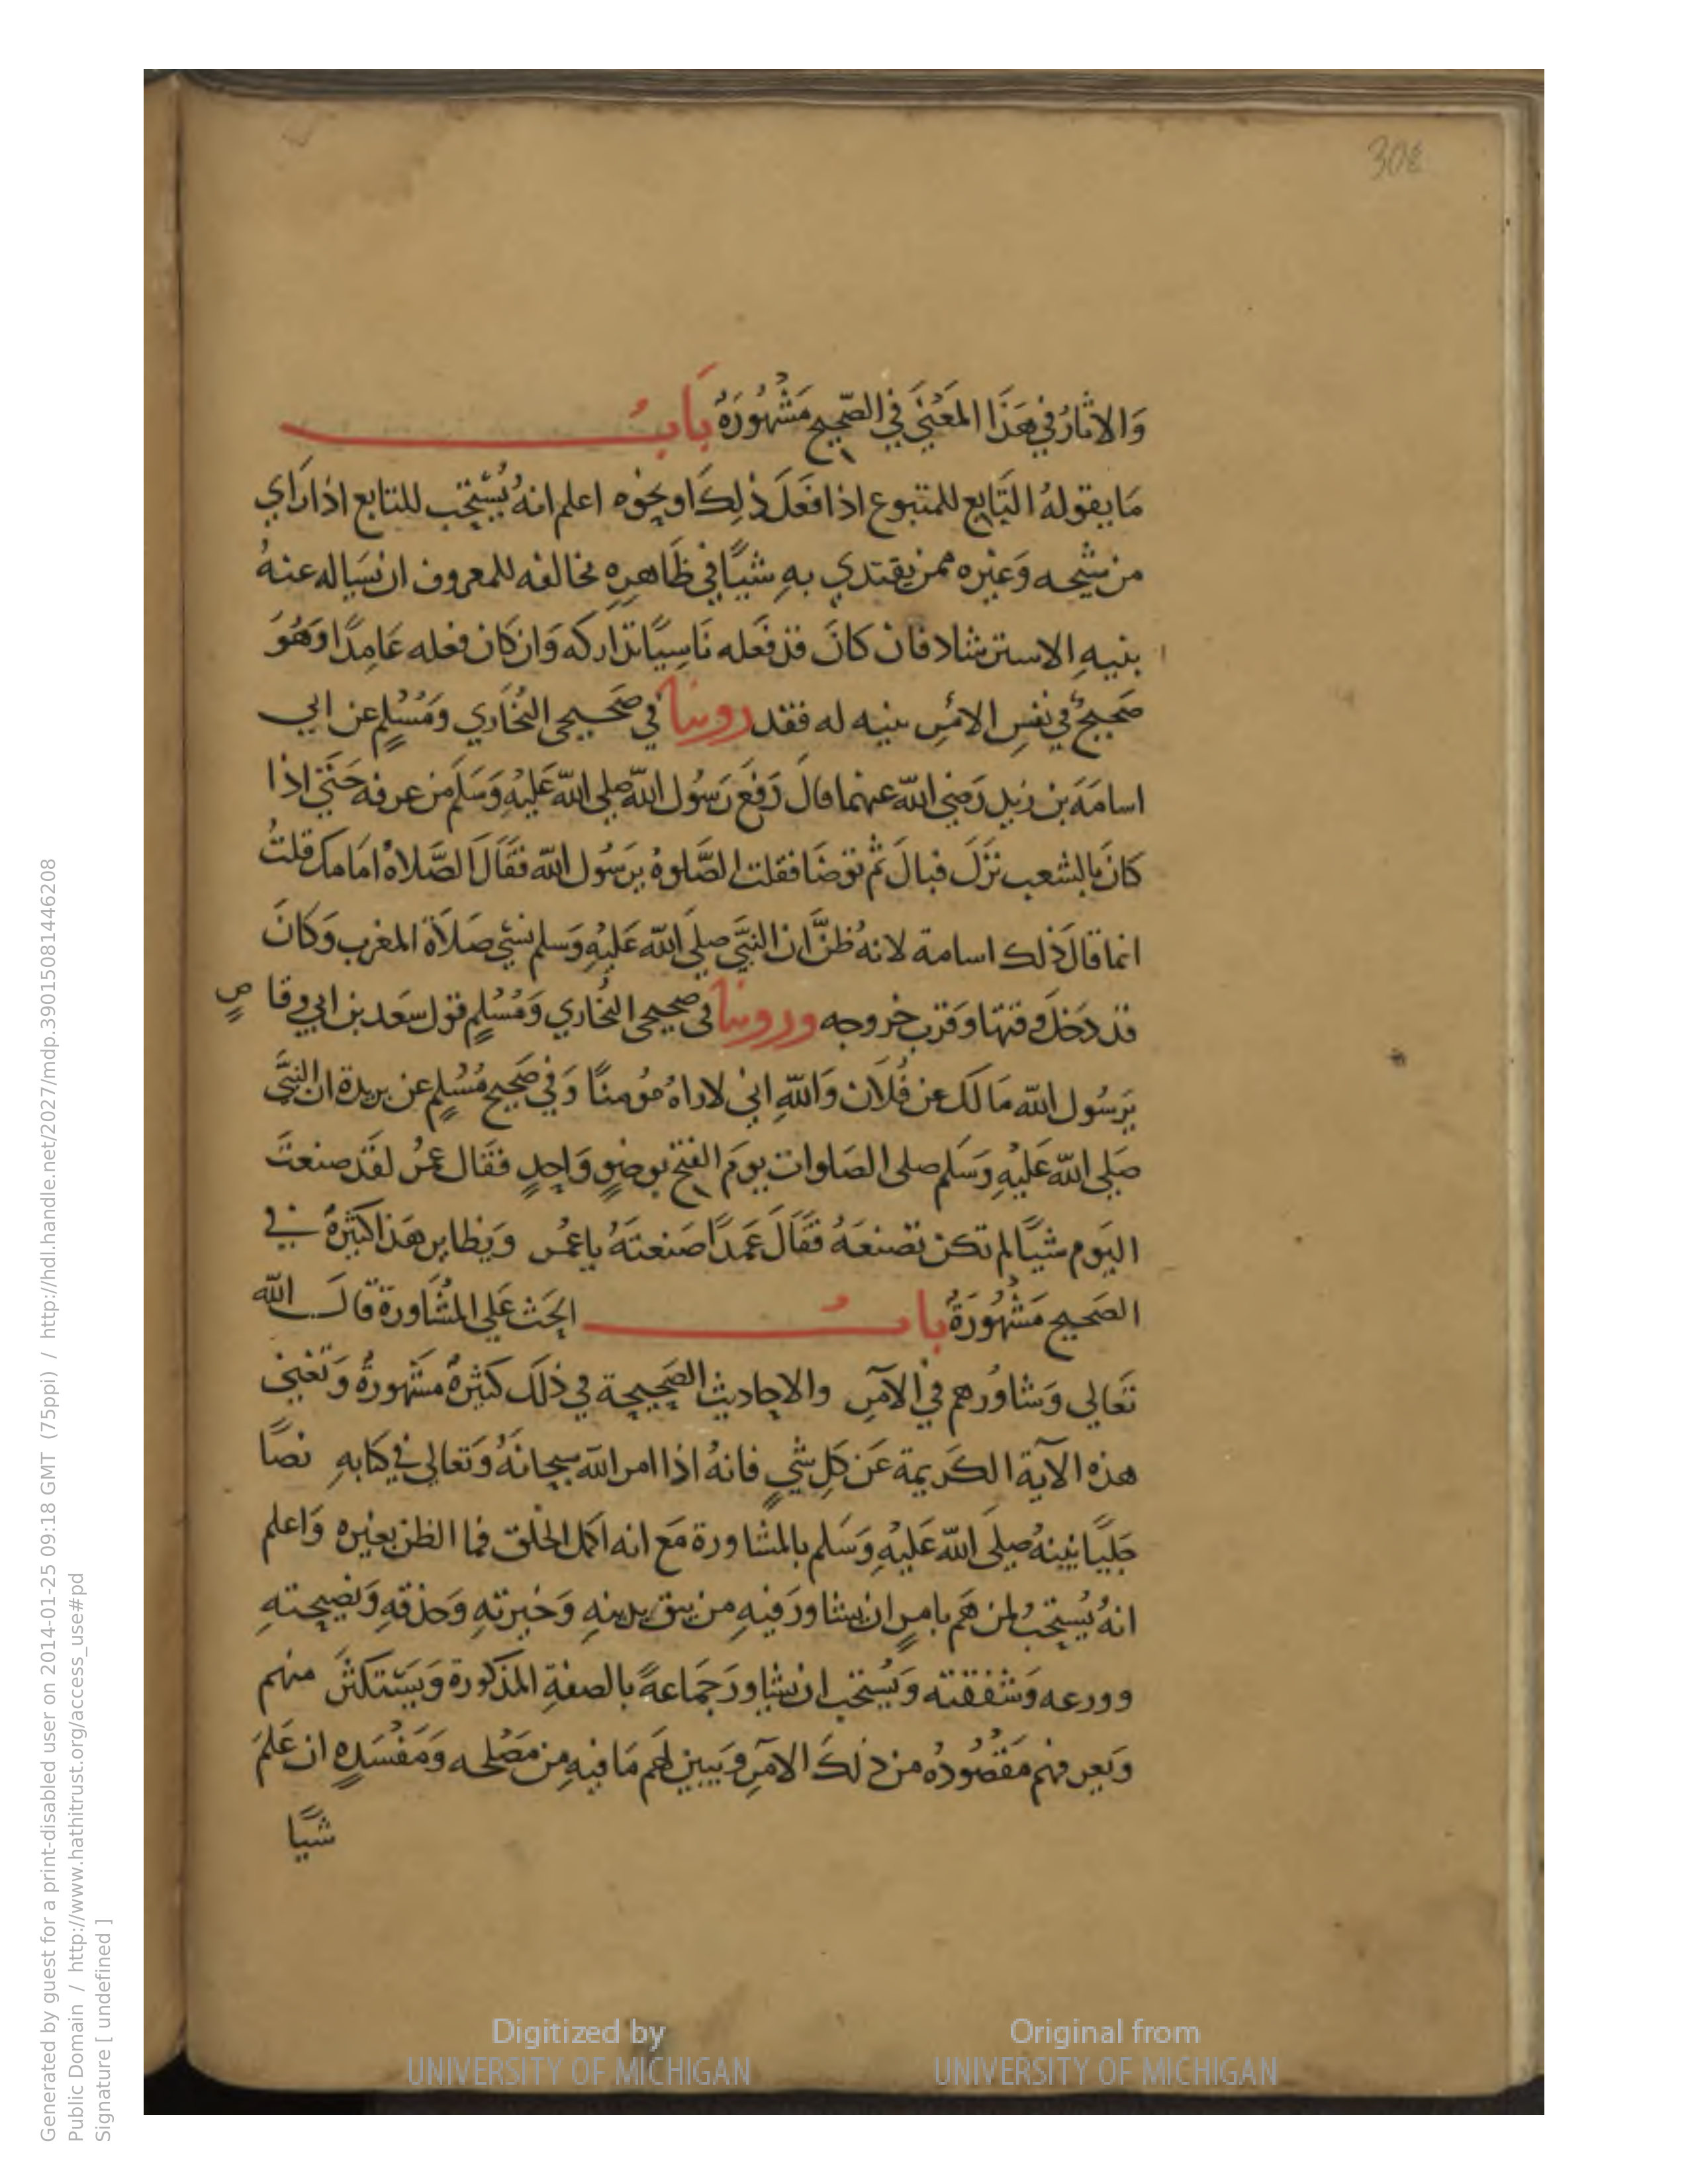 308
وَالاثَارُ في هَذَا المَعْنَي في الصّحِيح مَشْهُورَةٌ بَابُ
مَا يقولهُ التَابع للمتبوع اذا فَعَلَ ذلِكَ او نحوه اعلم انهُ يُسْتحَب للتابع اذا رَاي
من شيخه وَغيره ممن يقتدي به شيًا في ظَاهرِه مخالفه للمعروف ان يَساله عنهُ
بنيهِ الاسترشاد فان كانَ قد فعَله نَاسيًا تداركه وَان كان فعله عَامِدًا وَهُوَ
صَحيحٌ في نفسِ الامْرِ بينه له فقد روينا في صَحيحي البُخَاري وَمُسْلمٍ عن ابي
اسامَةَ بن زيد رَضي الله عنهما قال دَفعَ رَسُول الله صلى الله عَليْهِ وَسَلّم من عرفه حَتّي اذا
كانَ بالشعب نَزَلَ فبالَ ثم توضَا فقلت الصَّلوةُ يرَسُول الله فقَالَ الصَّلاةُ امَامك قلتُ
انما قالَ ذلك اسامة لانهُ ظنَّ ان النبيَّ صلى الله عَليْهِ وَسلم نسي صَلاَةَ المغرب وَكانَ
قد دَخَلَ وقتها وَقرب خروجه وروينا في صحيحي البُخاري وَمُسْلمٍ قول سَعد بن ابي وقاصٍ
يرَسُول الله مَا لكَ عن فُلاَن وَاللهِ اني لاراهُ مُومنًا وَفي صَحيح مُسْلمٍ عن بريدة ان النبيَّ
صَلى الله عَليْهِ وَسَلم صلى الصَلوات يومَ الفتح بوضوٍ وَاحدٍ فقَال عمرُ لقَد صنعتَ
اليَوم شيًا لم تكن تصنعَهُ فقَالَ عَمدًا صَنعتَهُ ياعمر وَنظاير هَذا كثيرةٌ في
الصَحيح مَشْهُورَةٌ بابُ الحَث عَلي المشَاورة قالَ الله
تَعَالي وَشاورهم في الاَمرِ والاحاديث الصَحيحة في ذلكَ كثيرةٌ مشهورةٌ وَتغني
هذه الاَية الكَريمة عَن كلِ شيٍ فانهُ اذا امر الله سبحانَهُ وَتعالي في كتابهِ نصًا
جَليًا نبيهُ صلَى الله عَليْهِ وَسَلم بالمشاورة مَع انه اكمل الخلق فما الظن بغيره وَاعلم
انهُ يُستحَبُ لمن هَم بامرٍ ان يشاورَ فيهِ من يثق بدينهِ وَخبرتهِ وَحذقهِ وَنصيحتهِ
وورعه وَشفقته وَيُستحب ان يشاورَ جَماعةً بالصفةِ المذكورة وَيَستكثرَ منهم
وَيعرفهم مَقصُودُه من ذلكَ الامرِ وَيبين لهَم مَا فيهِ من مصْلحه وَمَفْسَدِهِ ان عَلمَ
شيًا
Generated by guest for a print-disabled user on 2014-01-25 09:18 GMT (75ppi) / http://hdl.handle.net/2027/mdp.39015081446208
Public Domain / http://www.hathitrust.org/access_use#pd
Signature [ undefined ]
Digitized by
UNIVERSITY OF MICHIGAN
Original from
UNIVERSITY OF MICHIGAN